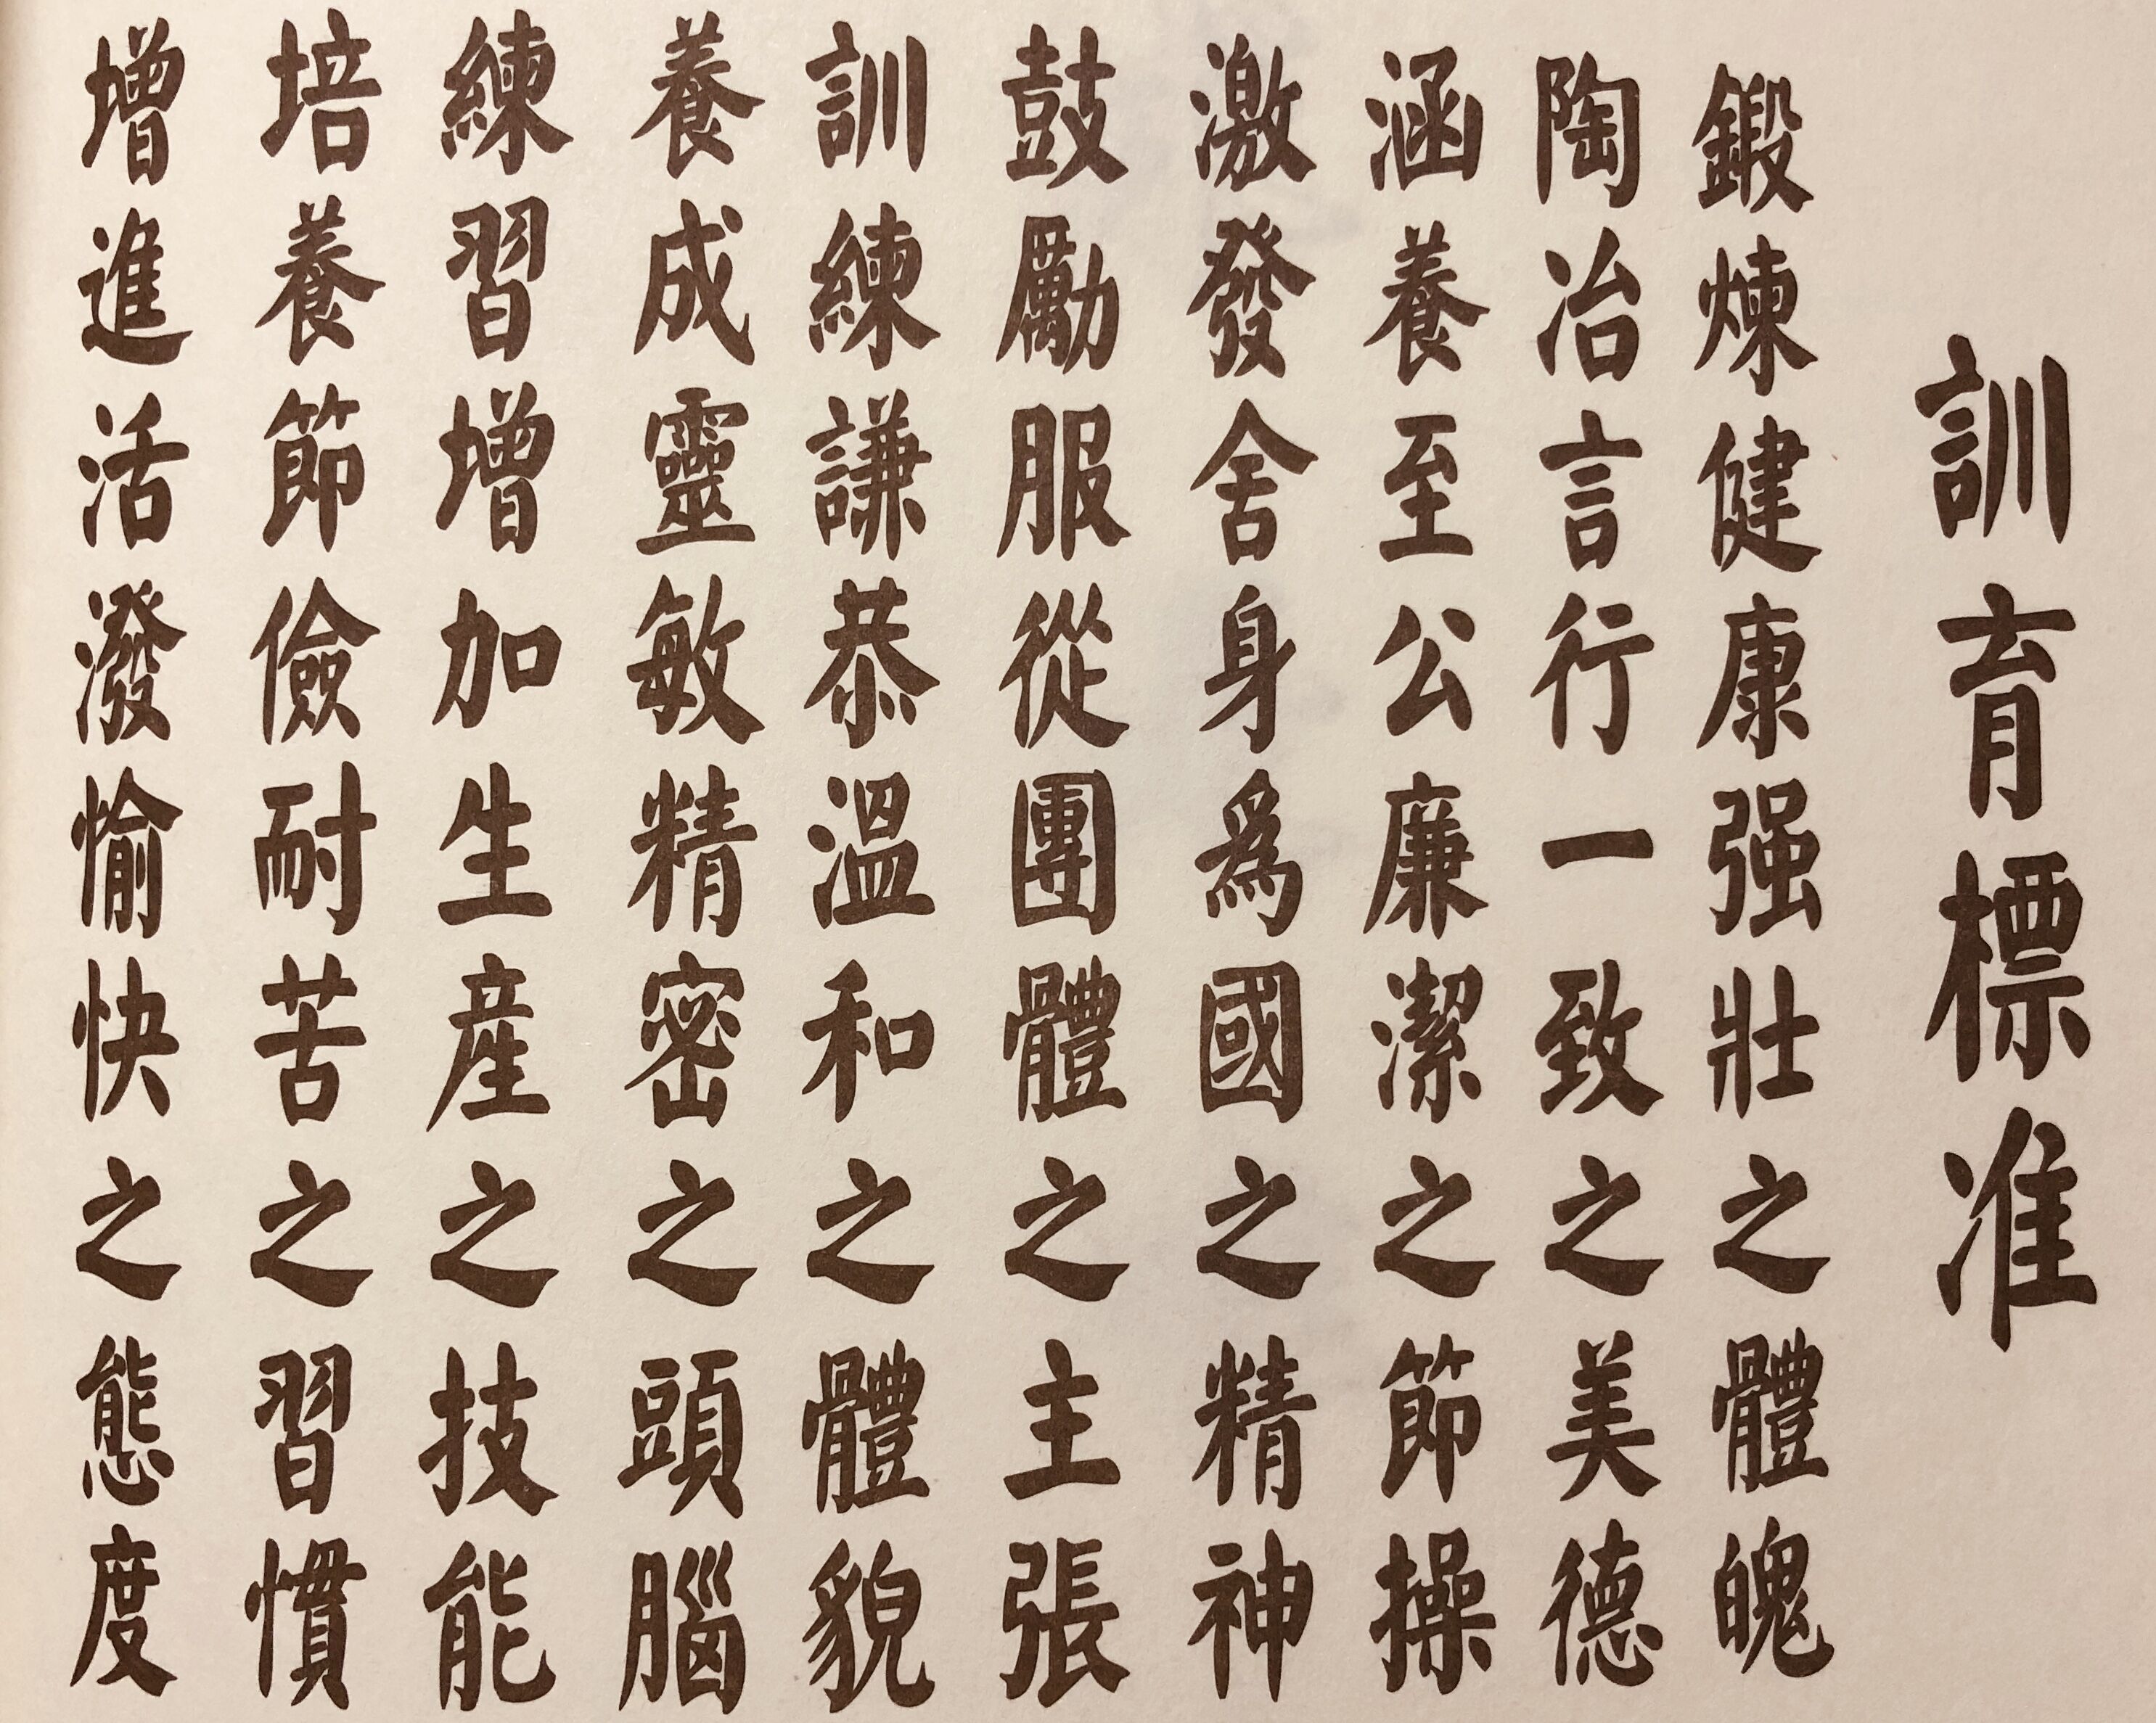 訓育標准
鍛煉健康强壯之體魄
陶冶言行一致之美德
涵養至公廉潔之節操
激發舍身爲國之精神
鼓勵服從團體之主張
訓練謙恭溫和之體貌
養成靈敏精密之頭腦
練習增加生産之技能
培養節儉耐苦之習慣
增進活潑愉快之態度